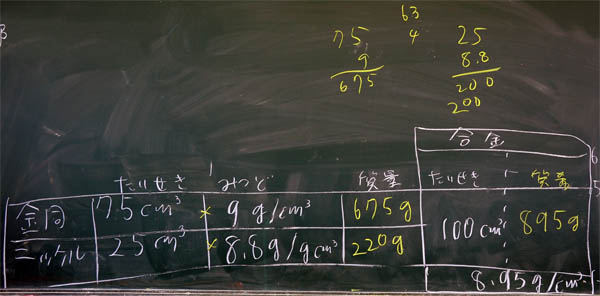 63
75 4 25
9 8.8
675 200
200
合金
たいせき みつど 質量 たいせき 質量
銅 75cm³ × 9g/cm³ 675g 100cm³ 895g
ニッケル 25cm³ × 8.8g/gcm³ 220g
8.95g/cm³